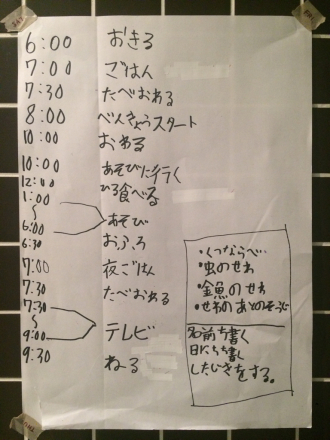 6:00 おきる
7:00 ごはん
7:30 たべおわる
8:00 べんきょうスタート
10:00 おわる
10:00 あそびに行く
12:00 ひる食べる
1:00
〜 あそび
6:00
6:30 おふろ
7:00 夜ごはん
7:30 たべおわる
7:30
〜 テレビ
9:00
9:30 ねる
・くつならべ
・虫のせわ
・金魚のせわ
・せわのあとのそうじ
名前も書く
日にちも書く
したじきをする。